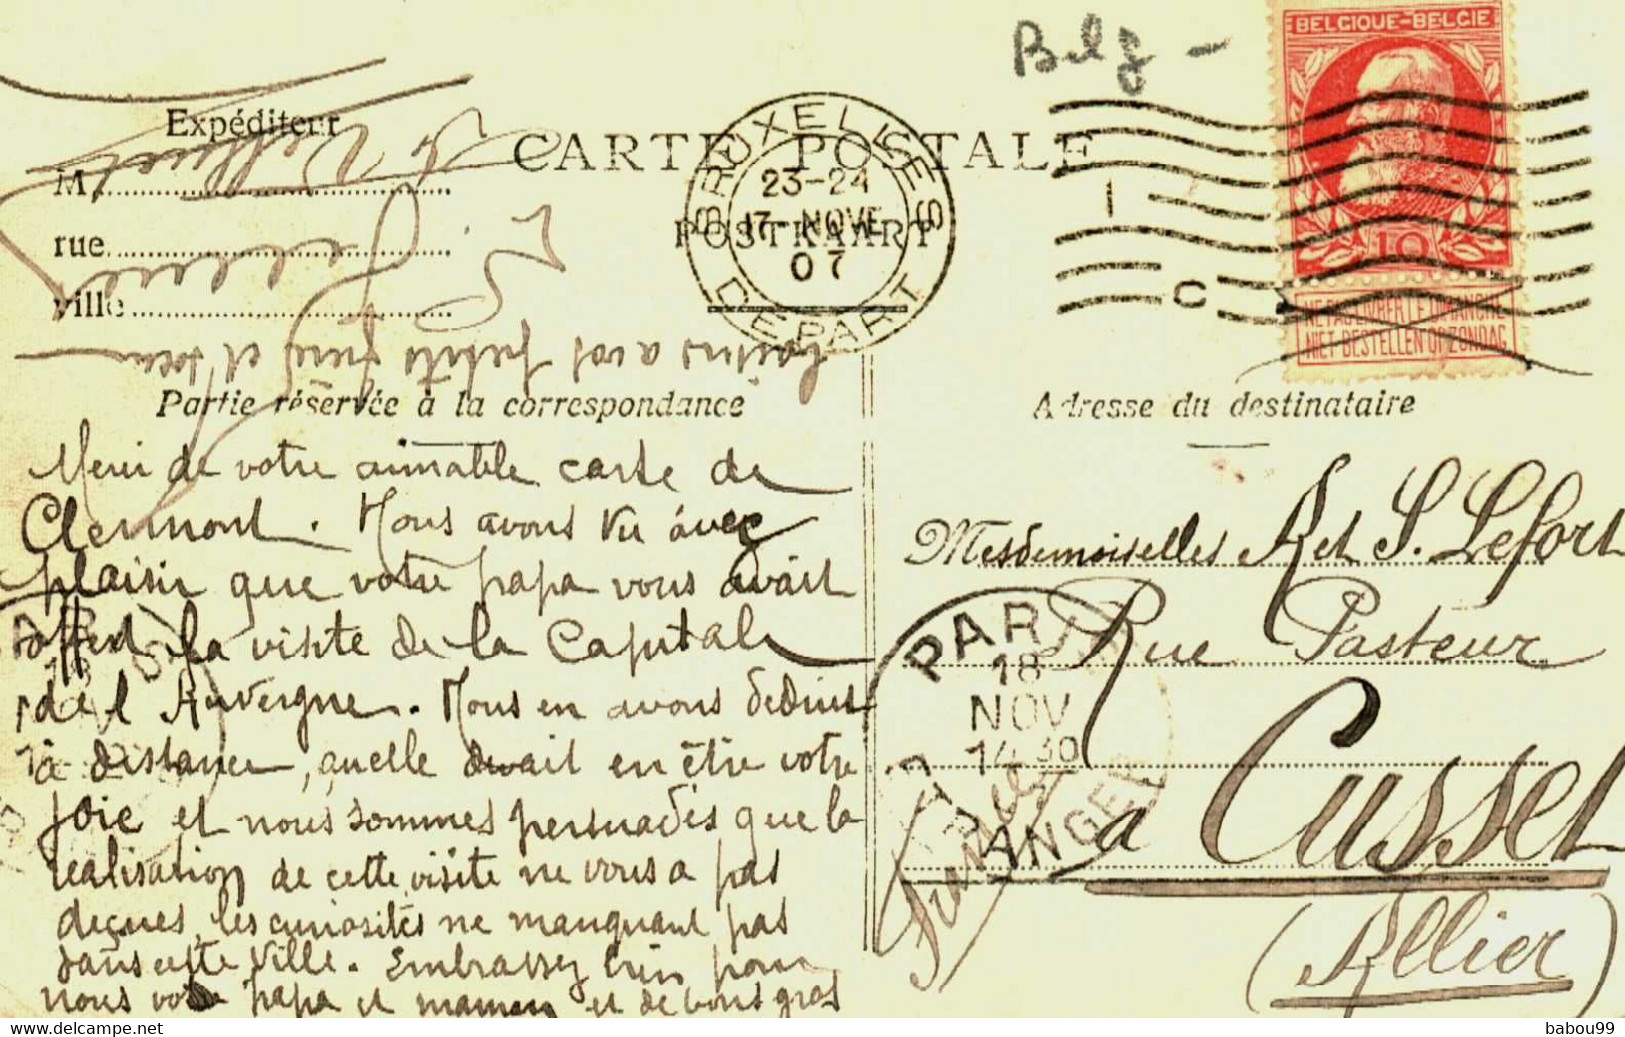 Belg -
BELGIQUE-BELGIE
10
NE PAS LIVRER LE DIMANCHE
NIET BESTELLEN OP ZONDAG
Expéditeur
M
rue
ville
CARTE POSTALE
POSTKAART
BRUXELLES
23-24
17-NOVE
07
DEPART
1
C
Partie réservée à la correspondance
Adresse du destinataire
Merci de votre aimable carte de
Clermont. Nous avons vu avec
plaisir que votre papa vous avait
offert la visite de la Capitale
de l'Auvergne. Nous en avons déduit
à distance, quelle devait en être votre
joie et nous sommes persuadés que la
réalisation de cette visite ne vous a pas
déçues, les curiosités ne manquant pas
dans cette ville. Embrassez bien pour
nous votre papa et maman et de bons gros
baisers à vos petits frère et soeur
Mesdemoiselles R et S. Lefort
Rue Pasteur
à Cusset
(Allier)
PARIS
18
NOV
14 30
ETRANGER
www.delcampe.net
babou99